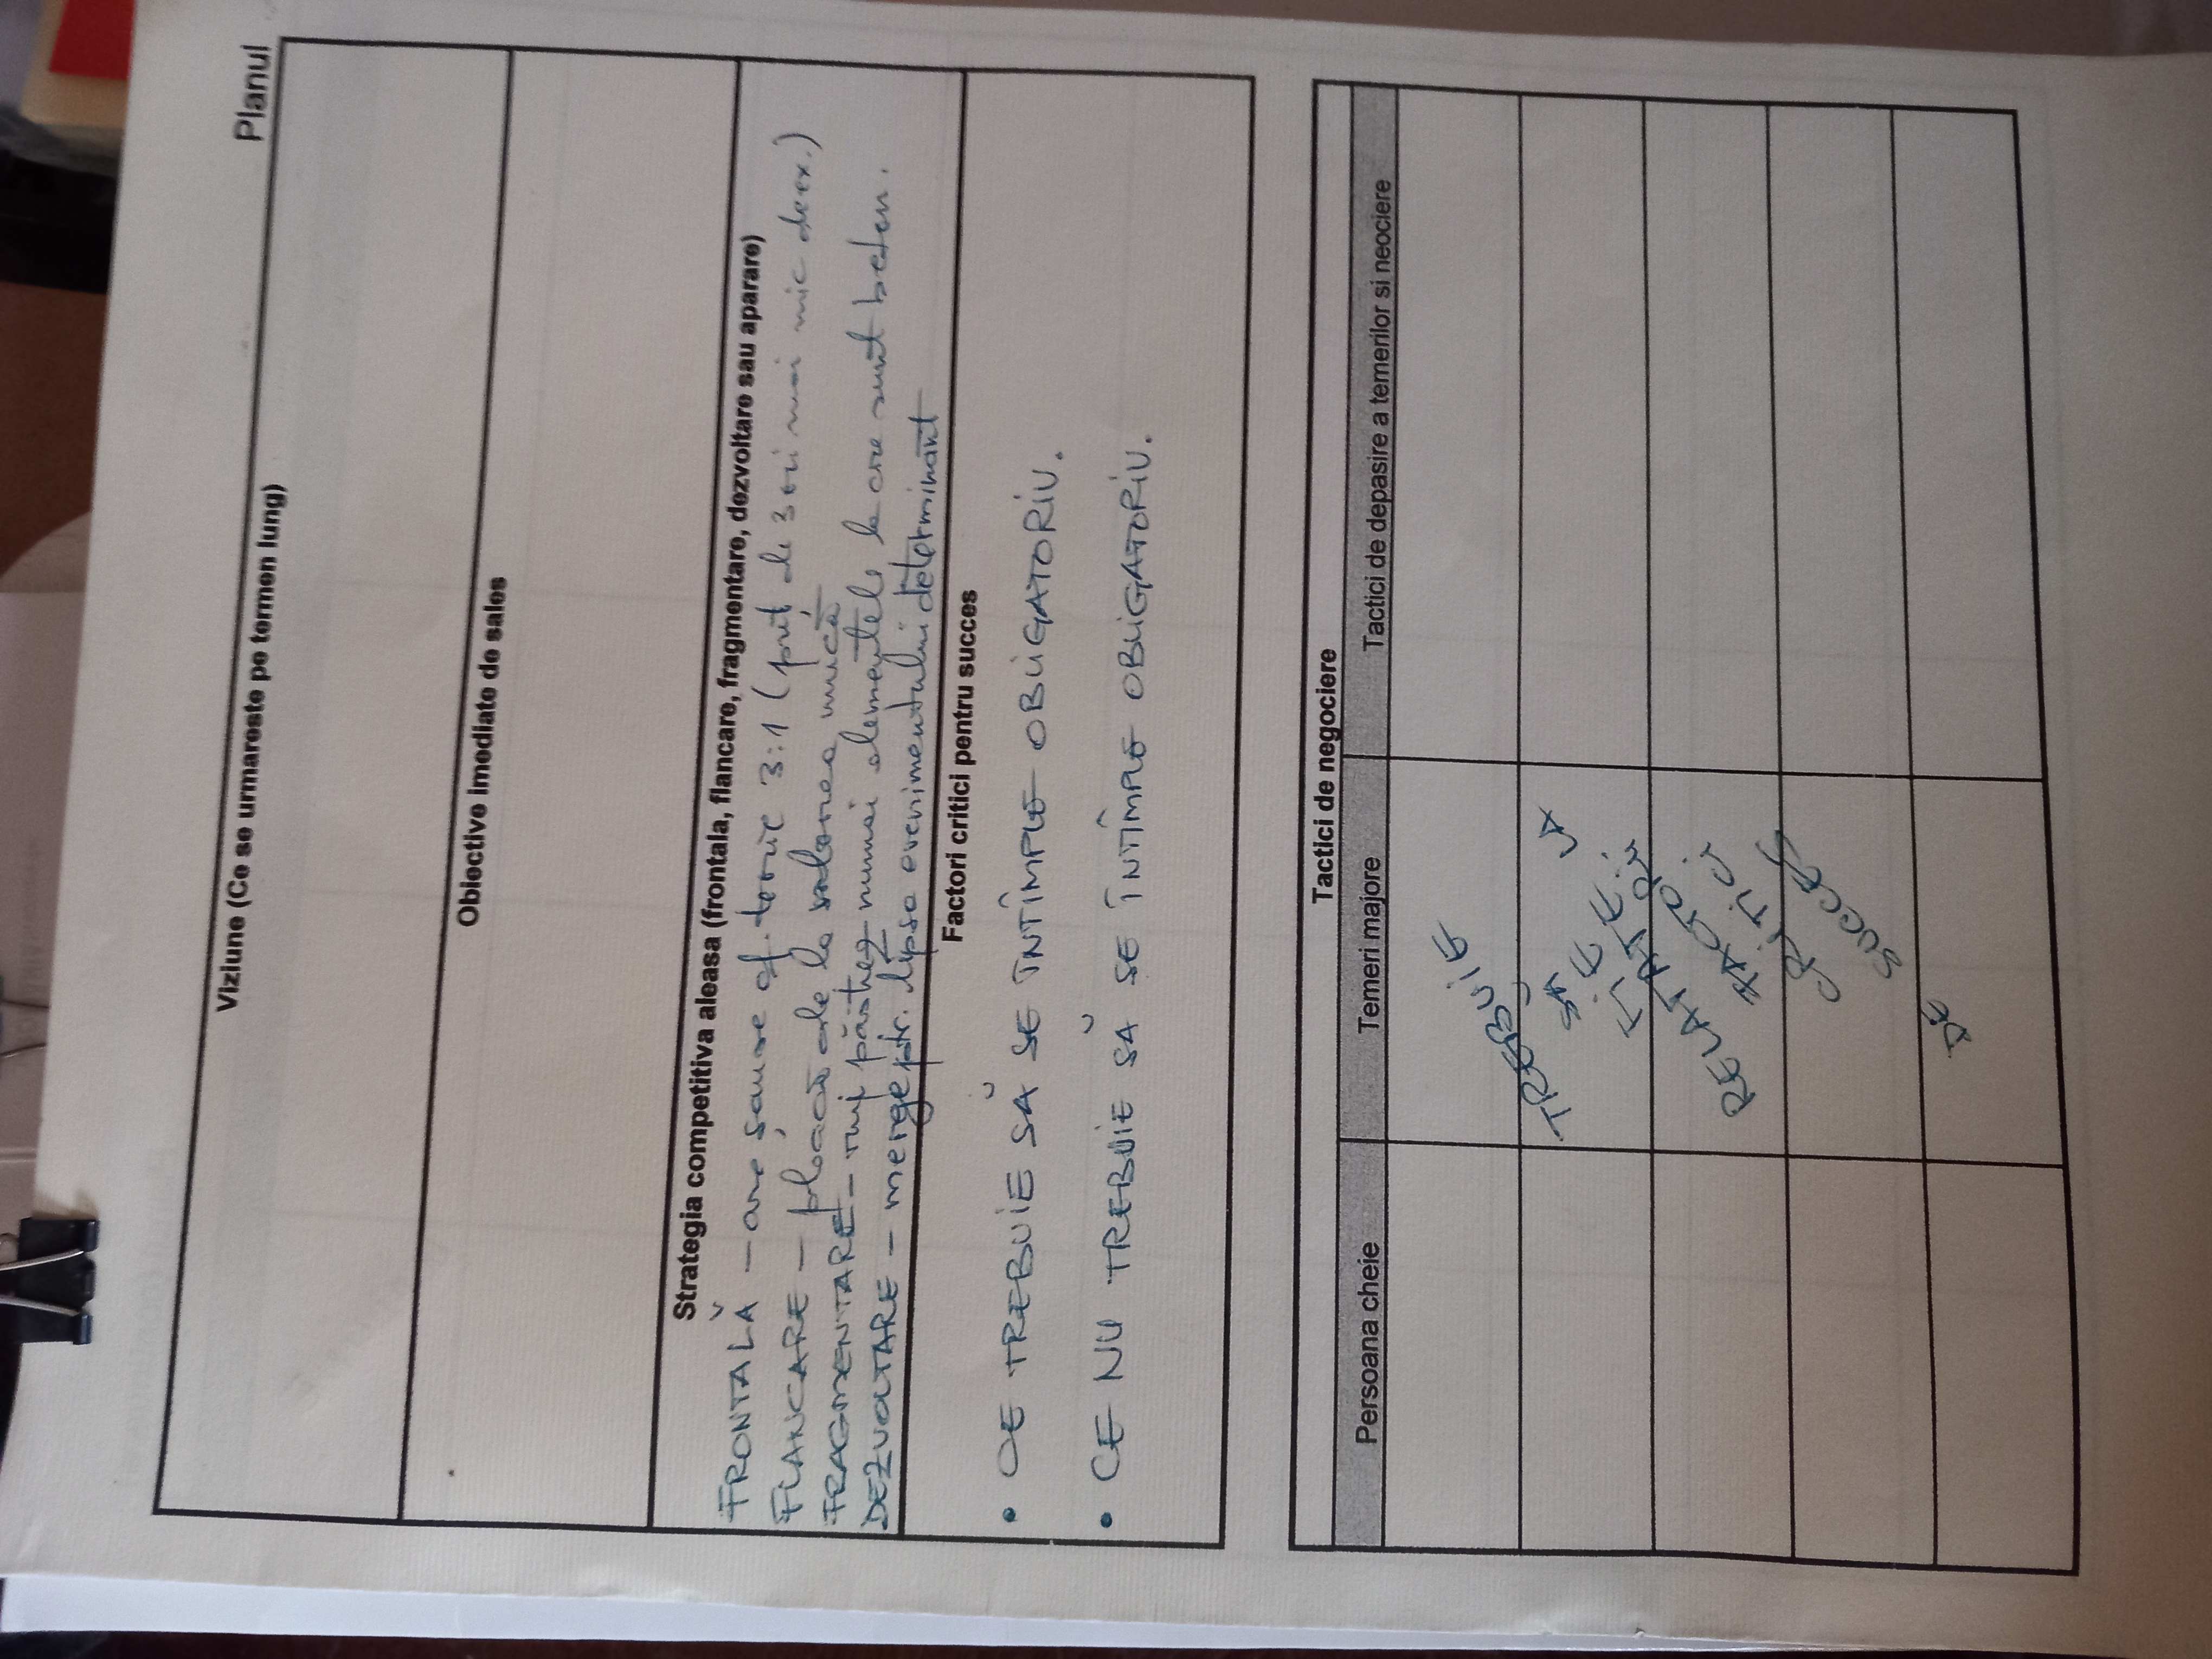 Planul
Viziune (Ce se urmareste pe termen lung)
Obiective imediate de sales
Strategia competitiva aleasa (frontala, flancare, fragmentare, dezvoltare sau aparare)
FRONTALĂ – are șanse cf. teorie 3:1 (preț de 3 ori mai mic de ex.)
FLANCARE – pleacă de la valoarea mică
FRAGMENTARE – îmi păstrez numai elementele la care sunt beton.
DEZVOLTARE – merge ptr. lipsa evenimentului determinant
Factori critici pentru succes
• CE TREBUIE SĂ SE ÎNTÎMPLE OBLIGATORIU.
• CE NU TREBUIE SĂ SE ÎNTÎMPLE OBLIGATORIU.
Tactici de negociere
Persoana cheie Temeri majore Tactici de depasire a temerilor si neociere
TREBUIE
SĂ
FIE
RELATATE LA
FACTORII
CRITICI
DE SUCCES